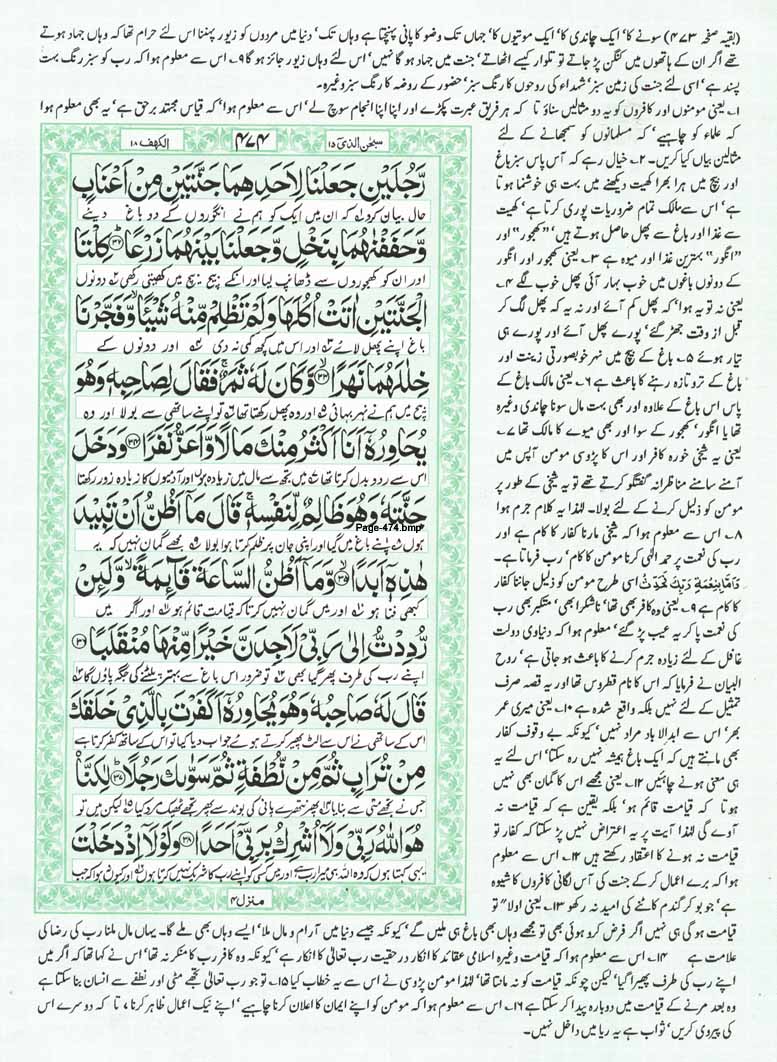 (بقیہ صفحہ ۴۷۳) سونے کا' ایک چاندی کا' ایک موتیوں کا' جہاں تک وضو کا پانی پہنچتا ہے وہاں تک' دنیا میں مردوں کو زیور پہننا اس لئے حرام تھا کہ وہاں جہاد ہوتے
تھے اگر ان کے ہاتھوں میں کنگن پڑ جاتے تو تلوار کیسے اٹھاتے' جنت میں جہاد ہو گا نہیں' اس لئے وہاں زیور جائز ہو گا ۹۔ اس سے معلوم ہوا کہ رب کو سبز رنگ بہت
پسند ہے' اسی لئے جنت کی زمین سبز' شہداء کی روحوں کا رنگ سبز' حضور کے روضہ کا رنگ سبز وغیرہ۔
۱۔ یعنی مومنوں اور کافروں کو یہ دو مثالیں سناؤ تا کہ ہر فریق عبرت پکڑے اور اپنا اپنا انجام سوچ لے' اس سے معلوم ہوا' کہ قیاس مجتہد برحق ہے' یہ بھی معلوم ہوا
سبحٰن الذی ۱۵
۴۷۴
الکھف ۱۸
رَّجُلَيْنِ جَعَلْنَا لِاَحَدِهِمَا جَنَّتَيْنِ مِنْ اَعْنَابٍ
حال بیان کرو لہ کہ ان میں ایک کو ہم نے انگوروں کے دو باغ دیئے
وَّحَفَفْنٰهُمَا بِنَخْلٍ وَّجَعَلْنَا بَيْنَهُمَا زَرْعًا ۳۲ كِلْتَا
اور ان کو کھجوروں سے ڈھانپ لیا اور انکے بیچ بیچ میں کھیتی رکھی دونوں
الْجَنَّتَيْنِ اٰتَتْ اُكُلَهَا وَلَمْ تَظْلِمْ مِّنْهُ شَيْـًٔا وَّفَجَّرْنَا
باغ اپنے پھل لائے اور اس میں کچھ کمی نہ دی اور دونوں کے
خِلٰلَهُمَا نَهَرًا ۳۳ وَّكَانَ لَهٗ ثَمَرٌ فَقَالَ لِصَاحِبِهٖ وَهُوَ
بیچ میں ہم نے نہر بہائی اور وہ پھل رکھتا تھا تو اپنے ساتھی سے بولا اور وہ
يُحَاوِرُهٗٓ اَنَا اَكْثَرُ مِنْكَ مَالًا وَّاَعَزُّ نَفَرًا ۳۴ وَدَخَلَ
اس سے رد و بدل کرتا تھا میں تجھ سے مال میں زیادہ ہوں اور آدمیوں کا زیادہ زور رکھتا
جَنَّتَهٗ وَهُوَ ظَالِمٌ لِّنَفْسِهٖ قَالَ مَآ اَظُنُّ اَنْ تَبِيْدَ
Page-474.bmp
ہوں اپنے باغ میں گیا اور اپنی جان پر ظلم کرتا ہوا بولا مجھے گمان نہیں کہ یہ
هٰذِهٖٓ اَبَدًا ۳۵ وَّمَآ اَظُنُّ السَّاعَةَ قَآئِمَةً وَّلَئِنْ
کبھی فنا ہو اور میں گمان نہیں کرتا کہ قیامت قائم ہو اور اگر میں
رُّدِدْتُّ اِلٰى رَبِّيْ لَاَجِدَنَّ خَيْرًا مِّنْهَا مُنْقَلَبًا ۳۶
اپنے رب کی طرف پھر گیا بھی تو ضرور اس باغ سے بہتر پلٹنے کی جگہ پاؤں گا
قَالَ لَهٗ صَاحِبُهٗ وَهُوَ يُحَاوِرُهٗٓ اَكَفَرْتَ بِالَّذِيْ خَلَقَكَ
اس کے ساتھی نے اس سے الٹ پھیر کرتے ہوئے جواب دیا کیا تو اس کے ساتھ کفر کرتا ہے
مِنْ تُرَابٍ ثُمَّ مِنْ نُّطْفَةٍ ثُمَّ سَوّٰىكَ رَجُلًا ۳۷ لٰكِنَّا۠
جس نے تجھے مٹی سے بنایا پھر نتھرے پانی کی بوند سے پھر تجھے ٹھیک مرد کیا لیکن میں تو
هُوَ اللّٰهُ رَبِّيْ وَلَآ اُشْرِكُ بِرَبِّيْٓ اَحَدًا ۳۸ وَلَوْلَآ اِذْ دَخَلْتَ
یہی کہتا ہوں کہ وہ اللہ ہی میرا رب ہے اور میں کسی کو اپنے رب کا شریک نہیں کرتا ہوں اور کیوں نہ ہوا کہ جب
منزل ۴
کہ علماء کو چاہیے' کہ مسلمانوں کو سمجھانے کے لئے
مثالیں بیان کیا کریں۔ ۲۔ خیال رہے کہ آس پاس سبز باغ
اور بیچ میں ہرا بھرا کھیت دیکھنے میں بہت ہی خوشنما ہوتا
ہے' اس سے مالک تمام ضروریات پوری کرتا ہے' کھیت
سے غذا اور باغ سے پھل حاصل ہوتے ہیں "کھجور" اور
"انگور" بہترین غذا اور میوہ ہے ۳۔ یعنی کھجور اور انگور
کے دونوں باغوں میں خوب بہار آئی پھل خوب لگے ۴۔
یعنی نہ تو یہ ہوا' کہ پھل کم آئے اور نہ یہ کہ پھل لگ کر
قبل از وقت جھڑ گئے' پورے پھل آئے اور پورے ہی
تیار ہوئے ۵۔ باغ کے بیچ میں نہر خوبصورتی زینت اور
باغ کے تروتازہ رہنے کا باعث ہے ۶۔ یعنی مالک باغ کے
پاس اس باغ کے علاوہ اور بھی بہت مال سونا چاندی وغیرہ
تھا یا انگور' کھجور کے سوا اور بھی میوے کا مالک تھا ۷۔
یعنی یہ شیخی خورہ کافر اور اس کا پڑوسی مومن آپس میں
آمنے سامنے مناظرانہ گفتگو کرتے تھے تو یہ شیخی کے طور پر
مومن کو ذلیل کرنے کے لئے بولا۔ لہٰذا یہ کلام جرم ہوا
۸۔ اس سے معلوم ہوا کہ شیخی مارنا کفار کا کام ہے اور
رب کی نعمت پر حمد الٰہی کرنا مومن کا کام' رب فرماتا ہے۔
وَاَمَّا بِنِعْمَةِ رَبِّكَ فَحَدِّثْ اسی طرح مومن کو ذلیل جاننا کفار
کا کام ہے ۹۔ یعنی وہ کافر بھی تھا' ناشکرا بھی' متکبر بھی رب
کی نعمت پا کر یہ عیب پڑ گئے' معلوم ہوا کہ دنیاوی دولت
غافل کے لئے زیادہ جرم کرنے کا باعث ہو جاتی ہے' روح
البیان نے فرمایا کہ اس کا نام قطروس تھا اور یہ قصہ صرف
تمثیل کے لئے نہیں بلکہ واقع شدہ ہے ۱۰۔ یعنی میری عمر
بھر' اس سے ابد الاباد مراد نہیں' کیونکہ بے وقوف کفار
بھی مانتے ہیں کہ ایک باغ ہمیشہ نہیں رہ سکتا' اس لئے یہ
ہی معنی ہونے چاہئیں ۱۲۔ یعنی مجھے اس کا گمان بھی نہیں
ہوتا کہ قیامت قائم ہو' بلکہ یقین ہے کہ قیامت نہ
آوے گی لہٰذا آیت پر یہ اعتراض نہیں پڑ سکتا کہ کفار تو
قیامت نہ ہونے کا اعتقاد رکھتے ہیں ۱۲۔ اس سے معلوم
ہوا کہ برے اعمال کر کے جنت کی آس لگانی کافروں کا شیوہ
ہے' جو بو کر گندم کاٹنے کی امید نہ رکھو ۱۳۔ یعنی اولاً" تو
قیامت ہو گی ہی نہیں اگر فرض کرو ہوئی بھی تو مجھے وہاں بھی باغ ہی ملیں گے' کیونکہ جیسے دنیا میں آرام و مال ملا' ایسے وہاں بھی ملے گا۔ یہاں مال ملنا رب کی رضا کی
علامت ہے ۱۴۔ اس سے معلوم ہوا کہ قیامت وغیرہ اسلامی عقائد کا انکار درحقیقت رب تعالیٰ کا انکار ہے' کیونکہ وہ کافر رب کا منکر نہ تھا' اس نے کہا تھا کہ اگر میں
اپنے رب کی طرف پھیرا گیا' لیکن چونکہ قیامت کو نہ مانتا تھا' لہٰذا مومن پڑوسی نے اس سے یہ خطاب کیا ۱۵۔ تو جو رب تعالیٰ تجھے مٹی اور نطفے سے انسان بنا سکتا ہے
وہ بعد مرنے کے قیامت میں دوبارہ پیدا کر سکتا ہے ۱۶۔ اس سے معلوم ہوا کہ مومن کو اپنے ایمان کا اعلان کرنا چاہیے' اپنے نیک اعمال ظاہر کرنا' تا کہ دوسرے اس
کی پیروی کریں' ثواب ہے یہ ریا میں داخل نہیں۔